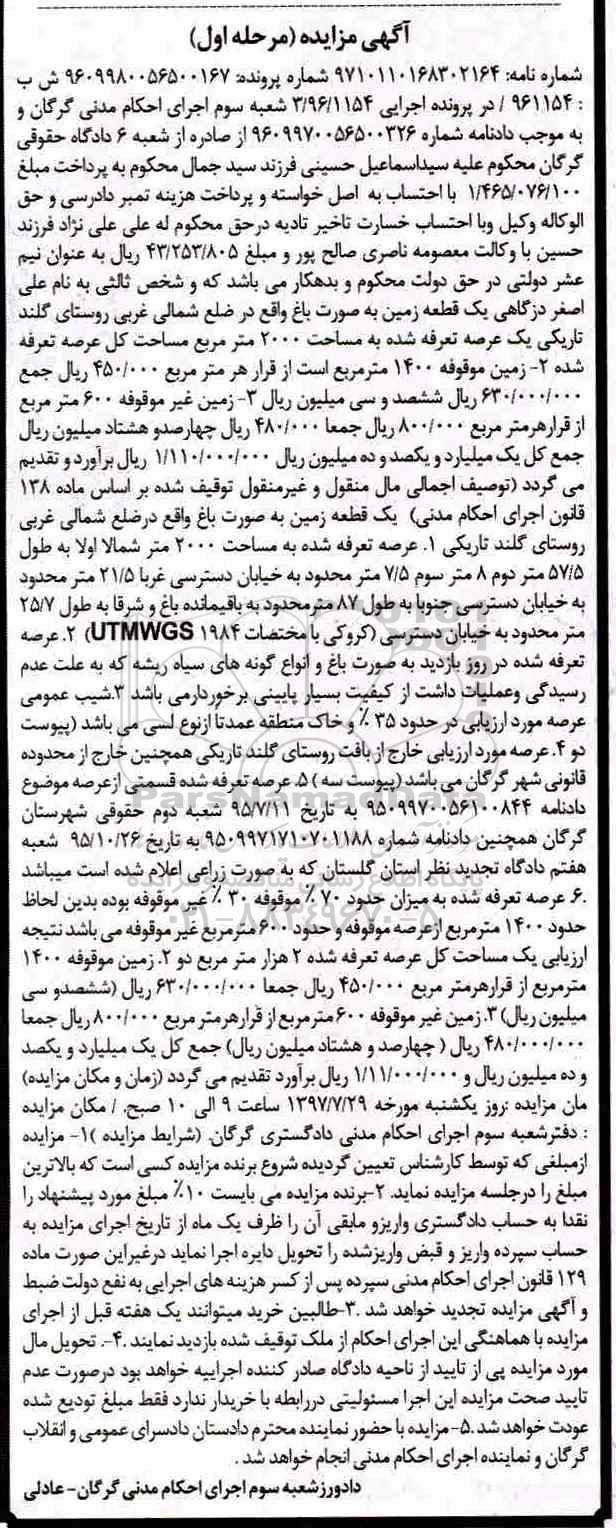 آگهی مزایده (مرحله اول)
شماره نامه: ۹۷۱۰۱۱۰۱۶۸۳۰۲۱۶۴ شماره پرونده: ۹۶۰۹۹۸۰۰۵۶۵۰۰۱۶۷ ش ب
: ۹۶۱۱۵۴ / در پرونده اجرایی ۳/۹۶/۱۱۵۴ شعبه سوم اجرای احکام مدنی گرگان و
به موجب دادنامه شماره ۹۶۰۹۹۷۰۰۵۶۵۰۰۳۲۶ از صادره از شعبه ۶ دادگاه حقوقی
گرگان محکوم علیه سیداسماعیل حسینی فرزند سید جمال محکوم به پرداخت مبلغ
۱/۴۶۵/۰۷۶/۱۰۰ با احتساب به اصل خواسته و پرداخت هزینه تمبر دادرسی و حق
الوکاله وکیل وبا احتساب خسارت تاخیر تادیه درحق محکوم له علی علی نژاد فرزند
حسین با وکالت معصومه ناصری صالح پور و مبلغ ۴۳/۲۵۳/۸۰۵ ریال به عنوان نیم
عشر دولتی در حق دولت محکوم و بدهکار می باشد که و شخص ثالثی به نام علی
اصغر دزگاهی یک قطعه زمین به صورت باغ واقع در ضلع شمالی غربی روستای گلند
تاریکی یک عرصه تعرفه شده به مساحت ۲۰۰۰ متر مربع مساحت کل عرصه تعرفه
شده ۲- زمین موقوفه ۱۴۰۰ مترمربع است از قرار هر متر مربع ۴۵۰/۰۰۰ ریال جمع
۶۳۰/۰۰۰/۰۰۰ ریال ششصد و سی میلیون ریال ۳- زمین غیر موقوفه ۶۰۰ متر مربع
از قرارهرمتر مربع ۸۰۰/۰۰۰ ریال جمعا ۴۸۰/۰۰۰ ریال چهارصدو هشتاد میلیون ریال
جمع کل یک میلیارد و یکصد و ده میلیون ریال ۱/۱۱۰/۰۰۰/۰۰۰ ریال برآورد و تقدیم
می گردد (توصیف اجمالی مال منقول و غیرمنقول توقیف شده بر اساس ماده ۱۳۸
قانون اجرای احکام مدنی) یک قطعه زمین به صورت باغ واقع درضلع شمالی غربی
روستای گلند تاریکی ۱. عرصه تعرفه شده به مساحت ۲۰۰۰ متر شمالا اولا به طول
۵۷/۵ متر دوم ۸ متر سوم ۷/۵ متر محدود به خیابان دسترسی غربا ۲۱/۵ متر محدود
به خیابان دسترسی جنوبا به طول ۸۷ مترمحدود به باقیمانده باغ و شرقا به طول ۲۵/۷
متر محدود به خیابان دسترسی (کروکی با مختصات UTMWGS ۱۹۸۴) ۲. عرصه
تعرفه شده در روز بازدید به صورت باغ و انواع گونه های سیاه ریشه که به علت عدم
رسیدگی وعملیات داشت از کیفیت بسیار پایینی برخوردارمی باشد ۳.شیب عمومی
عرصه مورد ارزیابی در حدود ۳۵ ٪ و خاک منطقه عمدتاً ازنوع لسی می باشد (پیوست
دو ۴. عرصه مورد ارزیابی خارج از بافت روستای گلند تاریکی همچنین خارج از محدوده
قانونی شهر گرگان می باشد (پیوست سه ) ۵. عرصه تعرفه شده قسمتی ازعرصه موضوع
دادنامه ۹۵۰۹۹۷۰۰۵۶۱۰۰۸۴۴ به تاریخ ۹۵/۷/۱۱ شعبه دوم حقوقی شهرستان
گرگان همچنین دادنامه شماره ۹۵۰۹۹۷۱۷۱۰۷۰۱۱۸۸ به تاریخ ۹۵/۱۰/۲۶ شعبه
هفتم دادگاه تجدید نظر استان گلستان که به صورت زراعی اعلام شده است میباشد
.۶. عرصه تعرفه شده به میزان حدود ۷۰ ٪ موقوفه ۳۰ ٪ غیر موقوفه بوده بدین لحاظ
حدود ۱۴۰۰ مترمربع ازعرصه موقوفه و حدود ۶۰۰ مترمربع غیر موقوفه می باشد نتیجه
ارزیابی یک مساحت کل عرصه تعرفه شده ۲ هزار متر مربع دو ۲. زمین موقوفه ۱۴۰۰
مترمربع از قرارهرمتر مربع ۴۵۰/۰۰۰ ریال جمعا ۶۳۰/۰۰۰/۰۰۰ ریال (ششصدو سی
میلیون ریال) ۳. زمین غیر موقوفه ۶۰۰ مترمربع از قرارهرمتر مربع ۸۰۰/۰۰۰ ریال جمعا
۴۸۰/۰۰۰/۰۰۰ ریال ( چهارصد و هشتاد میلیون ریال) جمع کل یک میلیارد و یکصد
و ده میلیون ریال و ۱/۱۱/۰۰۰/۰۰۰ ریال برآورد تقدیم می گردد (زمان و مکان مزایده)
مان مزایده :روز یکشنبه مورخه ۱۳۹۷/۷/۲۹ ساعت ۹ الی ۱۰ صبح. / مکان مزایده
: دفترشعبه سوم اجرای احکام مدنی دادگستری گرگان. (شرایط مزایده )۱- مزایده
ازمبلغی که توسط کارشناس تعیین گردیده شروع برنده مزایده کسی است که بالاترین
مبلغ را درجلسه مزایده نماید. ۲-برنده مزایده می بایست ۱۰٪ مبلغ مورد پیشنهاد را
نقدا به حساب دادگستری واریزو مابقی آن را ظرف یک ماه از تاریخ اجرای مزایده به
حساب سپرده واریز و قبض واریزشده را تحویل دایره اجرا نماید درغیراین صورت ماده
۱۲۹ قانون اجرای احکام مدنی سپرده پس از کسر هزینه های اجرایی به نفع دولت ضبط
و آگهی مزایده تجدید خواهد شد .۳-طالبین خرید میتوانند یک هفته قبل از اجرای
مزایده با هماهنگی این اجرای احکام از ملک توقیف شده بازدید نمایند .۴-. تحویل مال
مورد مزایده پی از تایید از ناحیه دادگاه صادر کننده اجراییه خواهد بود درصورت عدم
تایید صحت مزایده این اجرا مسئولیتی دررابطه با خریدار ندارد فقط مبلغ تودیع شده
عودت خواهد شد .۵-مزایده با حضور نماینده محترم دادستان دادسرای عمومی و انقلاب
گرگان و نماینده اجرای احکام مدنی انجام خواهد شد .
دادورزشعبه سوم اجرای احکام مدنی گرگان- عادلی
ParsNamadData
پایگاه اطلاع رسانی مناقصه و مزایده
۰۲۱-۸۸۳۴۹۶۷۰-۵